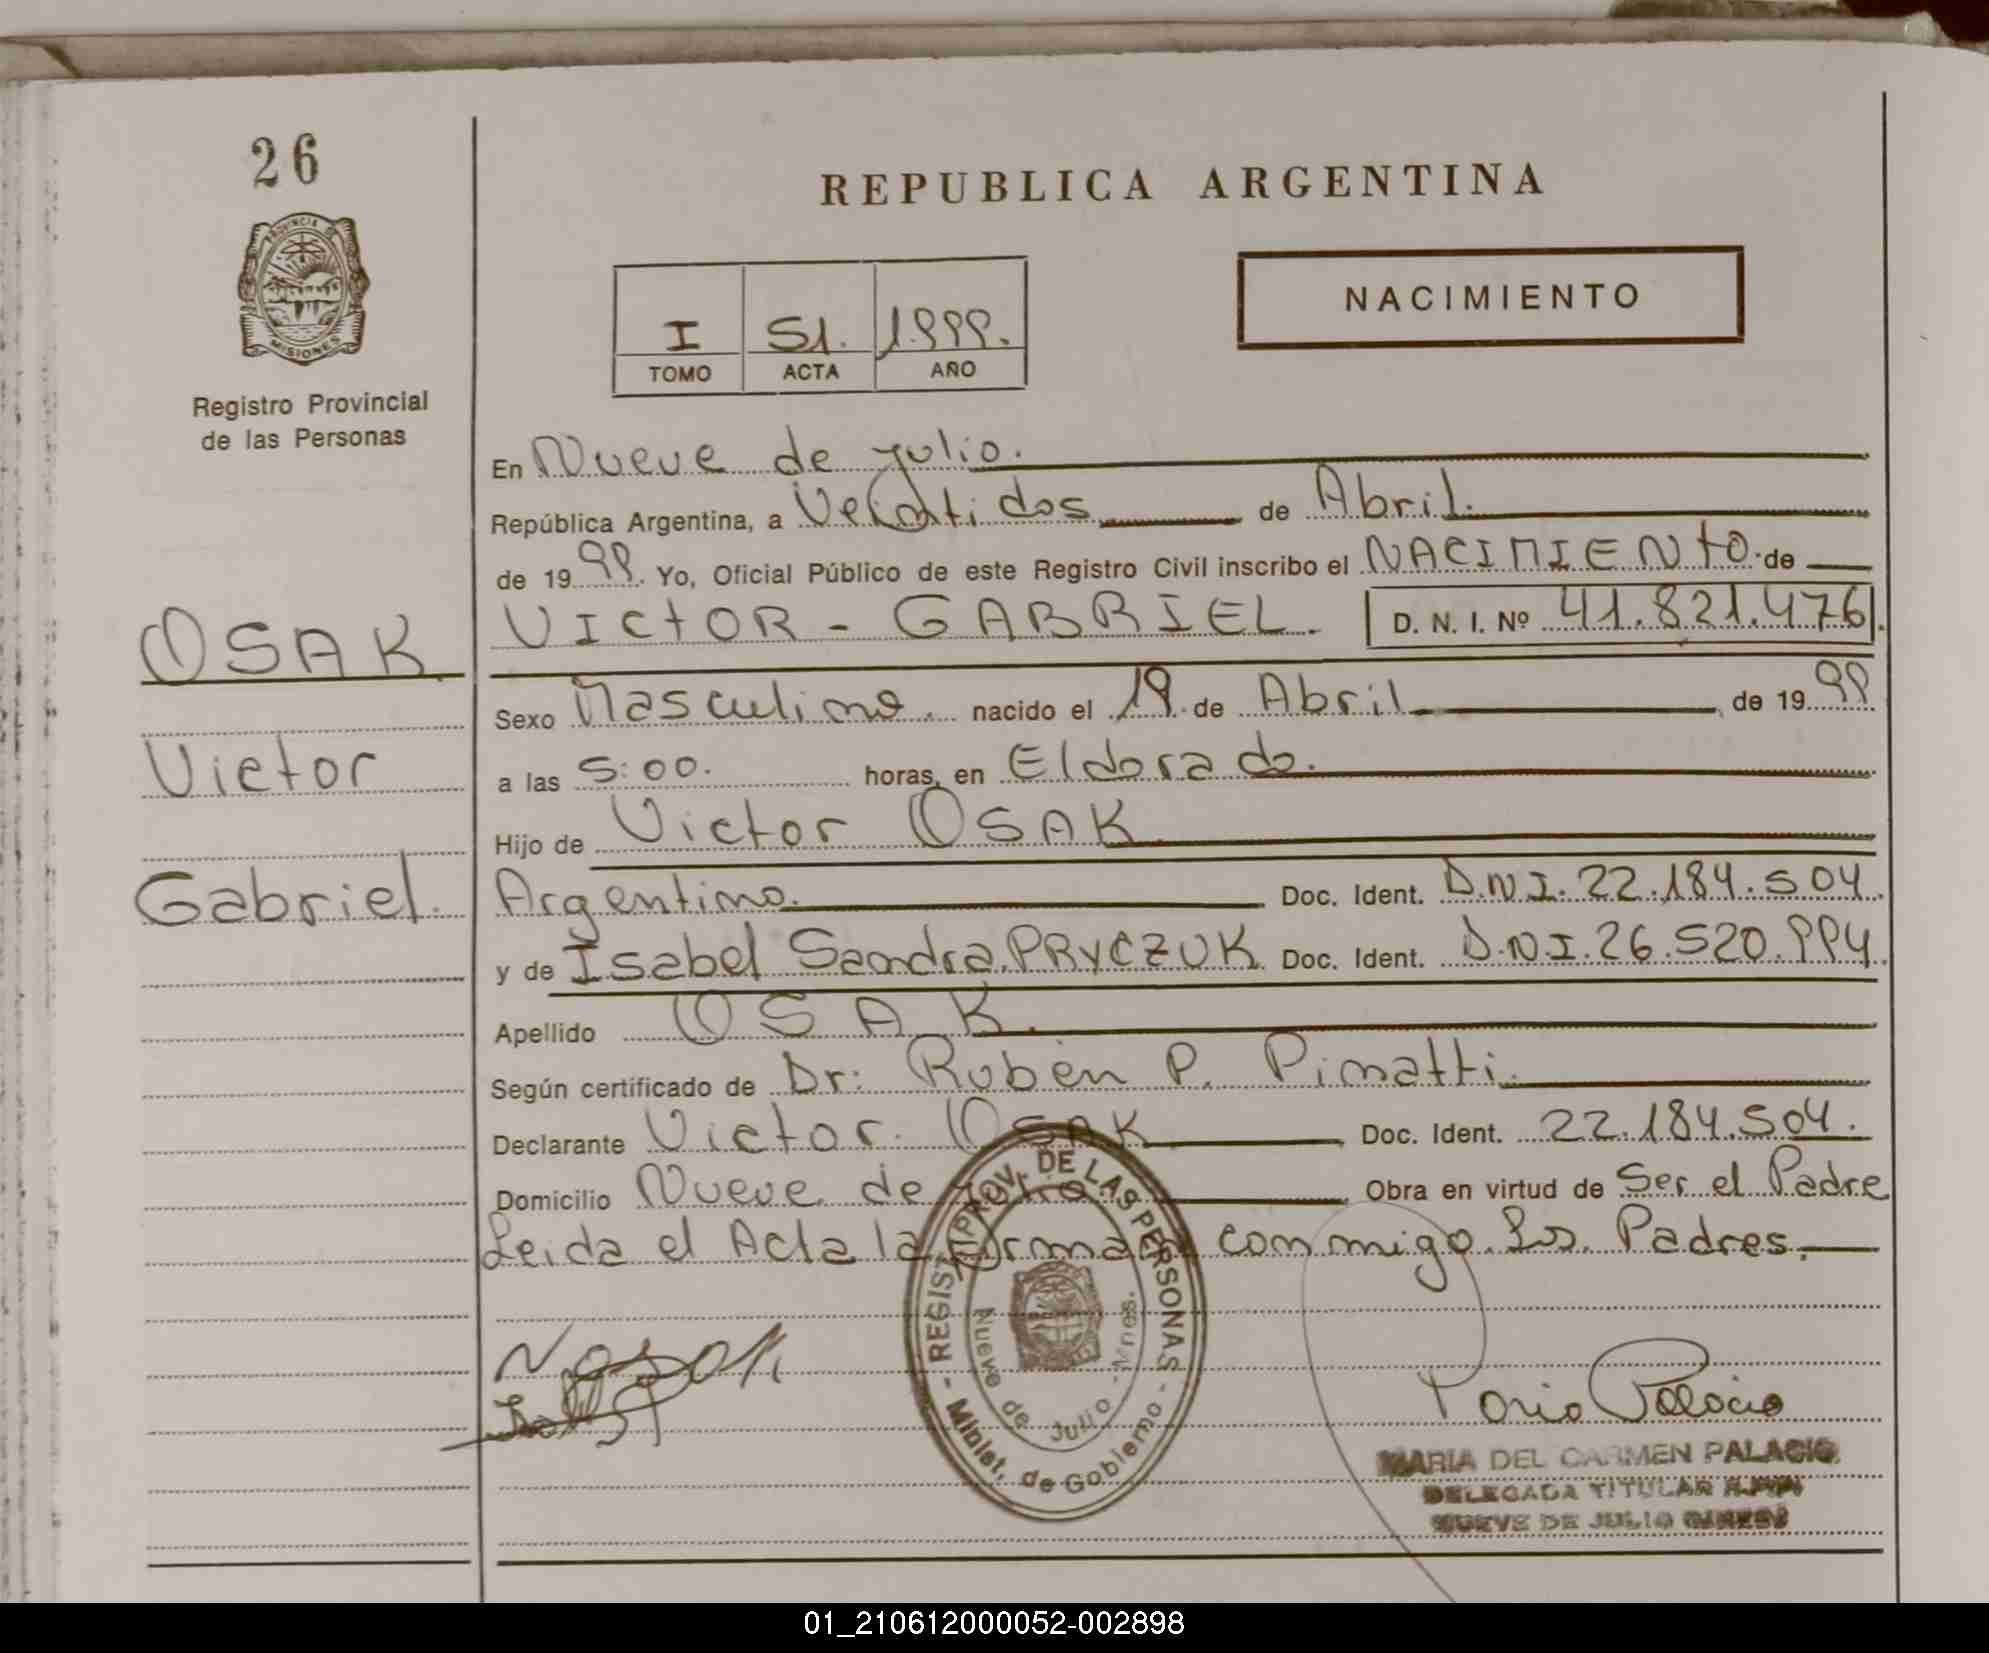 26
PROVINCIA DE
MISIONES
Registro Provincial
de las Personas
OSAK
Victor
Gabriel.
REPUBLICA ARGENTINA
I 51. 1.999.
TOMO ACTA AÑO
NACIMIENTO
En Nueve de julio.
República Argentina, a Veintidos de Abril.
de 1999. Yo, Oficial Público de este Registro Civil inscribo el NACIMIENTO. de
VICTOR - GABRIEL. D. N. I. Nº 41.821.476.
Sexo Masculino. nacido el 19. de Abril de 1999
a las 5:00. horas, en Eldorado.
Hijo de Victor OSAK
Argentino. Doc. Ident. D.N.I. 22.184.504.
y de Isabel Sandra PRYCZUK Doc. Ident. D.N.I. 26.520.994.
Apellido OSAK.
Según certificado de Dr: Rubén P. Pinatti.
Declarante Victor OSAK Doc. Ident. 22.184.504.
Domicilio Nueve de Julio. Obra en virtud de Ser el Padre
Leida el Acta la firman conmigo Los Padres.
REGIST. PROV. DE LAS PERSONAS
- Minist. de Gobierno -
Nueve de Julio - Mnes.
Maria Palacio
MARIA DEL CARMEN PALACIO
DELEGADA TITULAR
NUEVE DE JULIO
01_210612000052-002898